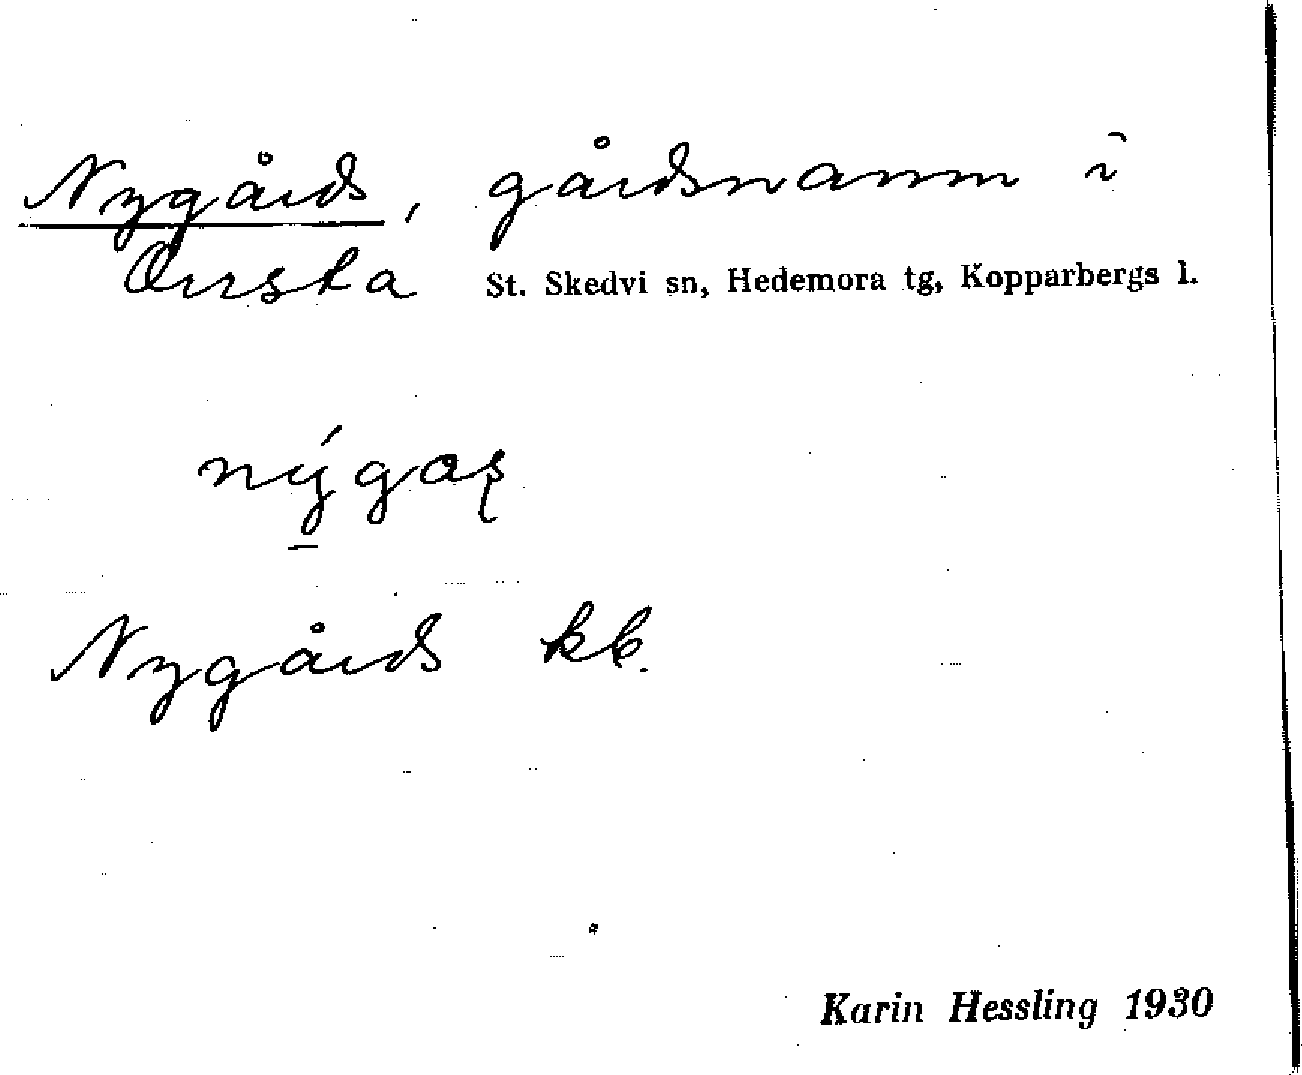 Nygårds, gårdsnamn i
Orrsta St. Skedvi sn, Hedemora tg, Kopparbergs l.
Nygårds kb.
Karin Hessling 1930